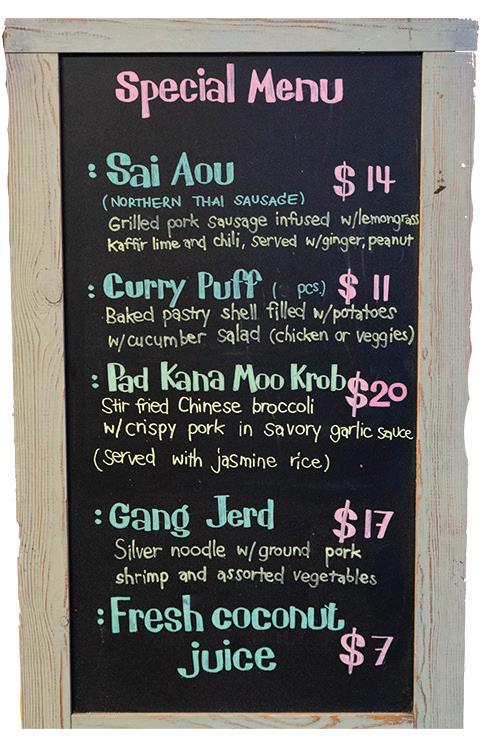 Special Menu
: Sai Aou $14
(NORTHERN THAI SAUSAGE)
Grilled pork sausage infused w/lemongrass
Kaffir lime and chili, served w/ginger, peanut
: Curry Puff ( pcs.) $11
Baked pastry shell filled w/potatoes
w/cucumber salad (chicken or veggies)
: Pad Kana Moo Krob $20
Stir fried Chinese broccoli
w/crispy pork in savory garlic sauce
(Served with jasmine rice)
: Gang Jerd $17
Silver noodle w/ground pork
shrimp and assorted vegetables
: Fresh coconut
juice $7